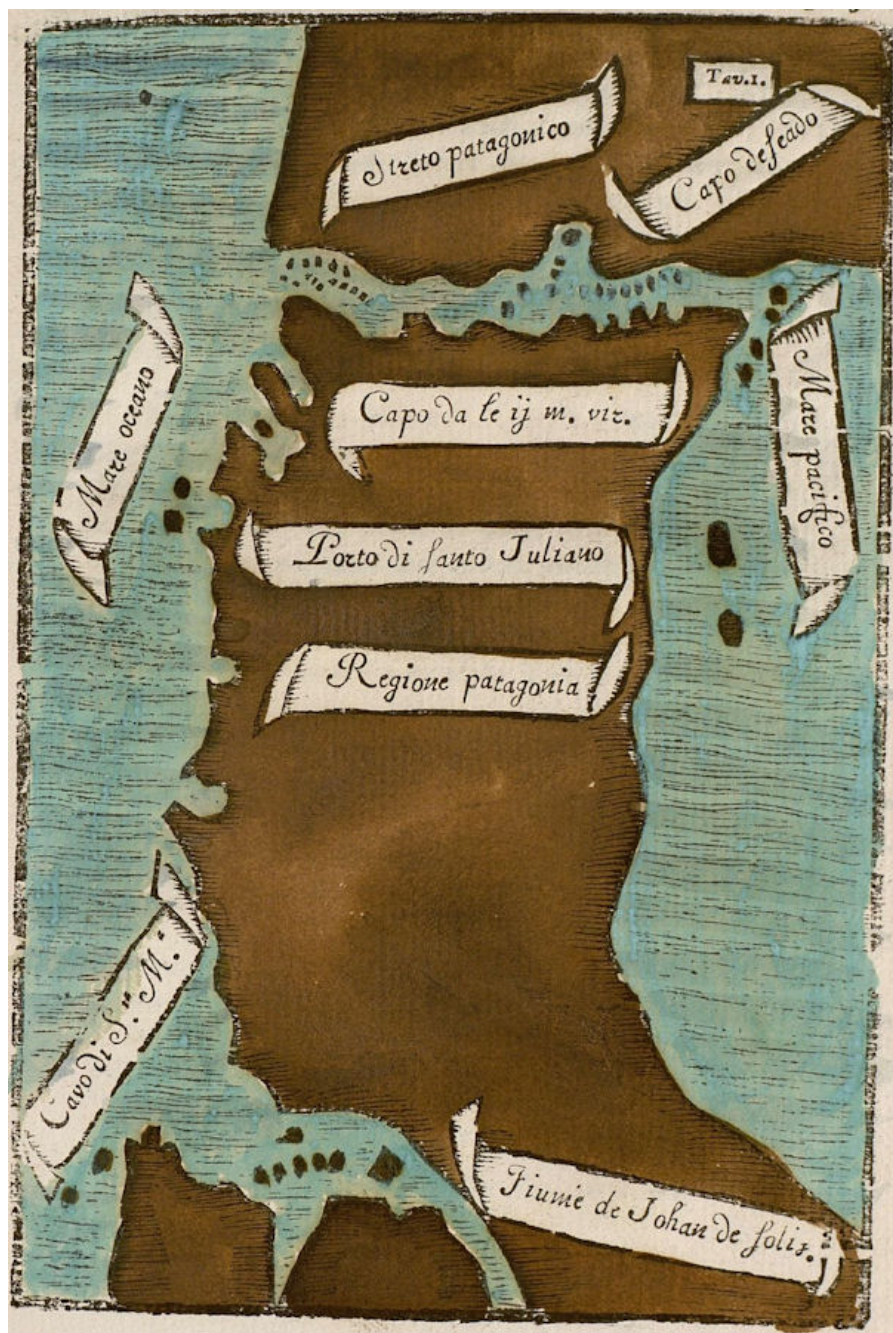 Tav.1.
Streto patagonico
Capo deseado
Mare oceano
Capo da le ij m. vir.
Mare pacifico
Porto di santo Juliano
Regione patagonia
Cavo di S.ta M.a
Fiume de Johan de solis.